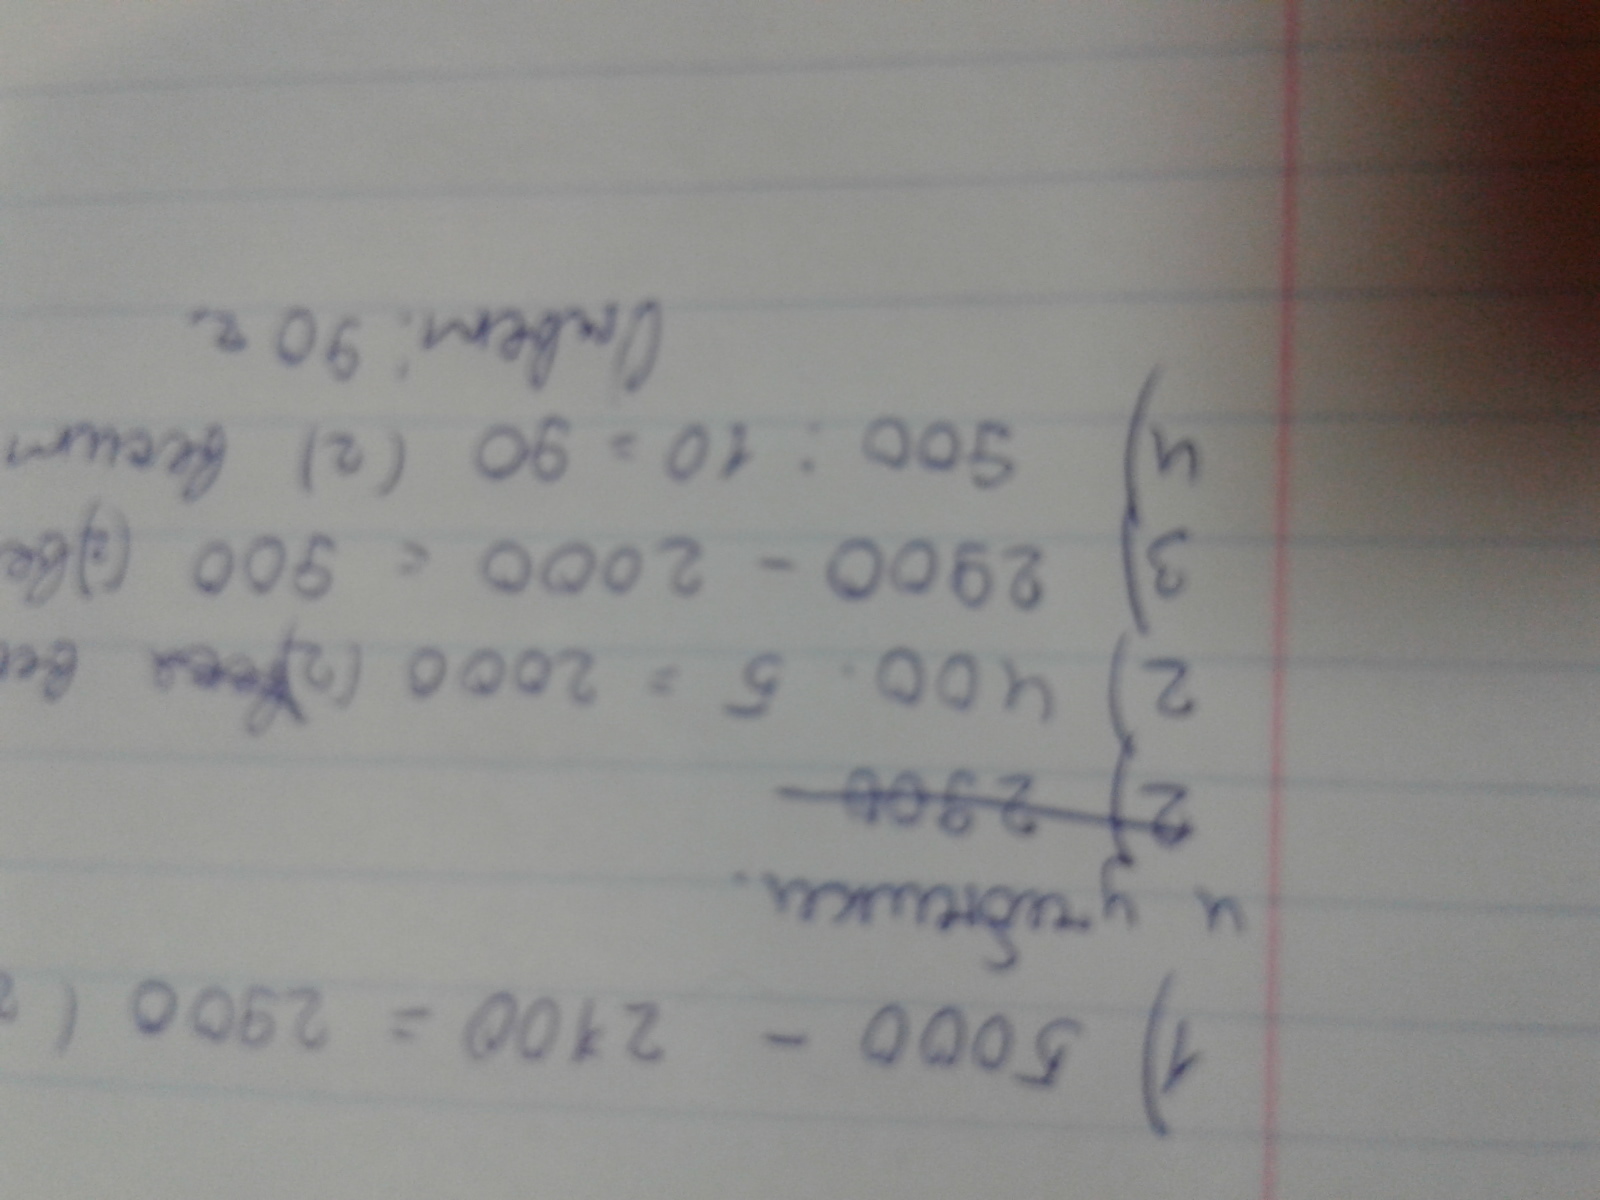 1) 5000 - 2100 = 2900 (г
и учебники.
2) 2900
2) 400 · 5 = 2000 (г) вес
3) 2900 - 2000 = 900 (г) ве
4) 900 : 10 = 90 (г) весит
Ответ: 90 г.